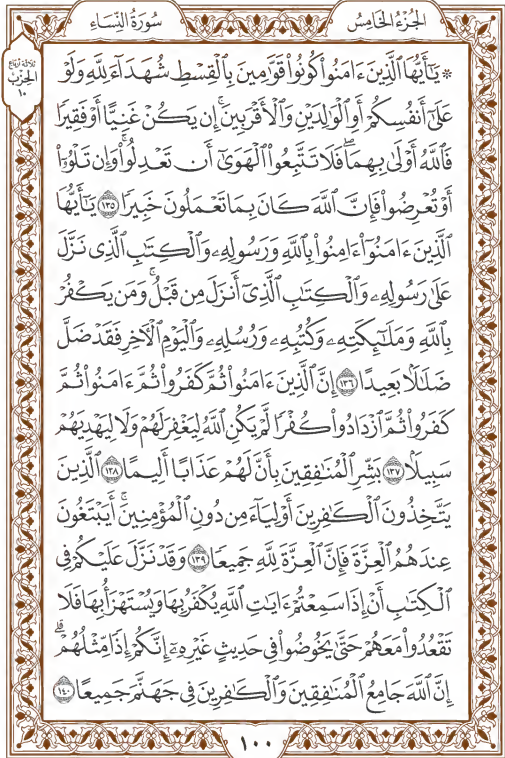 الجُزْءُ الخَامِسُ
سُورَةُ النِّسَاءِ
ثلاثة أرباع
الحِزْب
١٠
۞ يَٰٓأَيُّهَا ٱلَّذِينَ ءَامَنُواْ كُونُواْ قَوَّٰمِينَ بِٱلْقِسْطِ شُهَدَآءَ لِلَّهِ وَلَوْ
عَلَىٰٓ أَنفُسِكُمْ أَوِ ٱلْوَٰلِدَيْنِ وَٱلْأَقْرَبِينَۚ إِن يَكُنْ غَنِيًّا أَوْ فَقِيرًا
فَٱللَّهُ أَوْلَىٰ بِهِمَاۖ فَلَا تَتَّبِعُواْ ٱلْهَوَىٰٓ أَن تَعْدِلُواْۚ وَإِن تَلْوُۥٓاْ
أَوْ تُعْرِضُواْ فَإِنَّ ٱللَّهَ كَانَ بِمَا تَعْمَلُونَ خَبِيرًا ١٣٥ يَٰٓأَيُّهَا
ٱلَّذِينَ ءَامَنُوٓاْ ءَامِنُواْ بِٱللَّهِ وَرَسُولِهِۦ وَٱلْكِتَٰبِ ٱلَّذِى نَزَّلَ
عَلَىٰ رَسُولِهِۦ وَٱلْكِتَٰبِ ٱلَّذِىٓ أَنزَلَ مِن قَبْلُۚ وَمَن يَكْفُرْ
بِٱللَّهِ وَمَلَٰٓئِكَتِهِۦ وَكُتُبِهِۦ وَرُسُلِهِۦ وَٱلْيَوْمِ ٱلْءَاخِرِ فَقَدْ ضَلَّ
ضَلَٰلًۢا بَعِيدًا ١٣٦ إِنَّ ٱلَّذِينَ ءَامَنُواْ ثُمَّ كَفَرُواْ ثُمَّ ءَامَنُواْ ثُمَّ
كَفَرُواْ ثُمَّ ٱزْدَادُواْ كُفْرًا لَّمْ يَكُنِ ٱللَّهُ لِيَغْفِرَ لَهُمْ وَلَا لِيَهْدِيَهُمْ
سَبِيلًۢا ١٣٧ بَشِّرِ ٱلْمُنَٰفِقِينَ بِأَنَّ لَهُمْ عَذَابًا أَلِيمًا ١٣٨ ٱلَّذِينَ
يَتَّخِذُونَ ٱلْكَٰفِرِينَ أَوْلِيَآءَ مِن دُونِ ٱلْمُؤْمِنِينَۚ أَيَبْتَغُونَ
عِندَهُمُ ٱلْعِزَّةَ فَإِنَّ ٱلْعِزَّةَ لِلَّهِ جَمِيعًا ١٣٩ وَقَدْ نَزَّلَ عَلَيْكُمْ فِى
ٱلْكِتَٰبِ أَنْ إِذَا سَمِعْتُمْ ءَايَٰتِ ٱللَّهِ يُكْفَرُ بِهَا وَيُسْتَهْزَأُ بِهَا فَلَا
تَقْعُدُواْ مَعَهُمْ حَتَّىٰ يَخُوضُواْ فِى حَدِيثٍ غَيْرِهِۦٓ إِنَّكُمْ إِذًا مِّثْلُهُمْۗ
إِنَّ ٱللَّهَ جَامِعُ ٱلْمُنَٰفِقِينَ وَٱلْكَٰفِرِينَ فِى جَهَنَّمَ جَمِيعًا ١٤٠
١٠٠